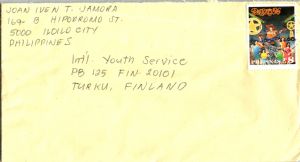 JOAN IVEN T. JAMORA
169-B HIPODROMO ST.
5000 ILOILO CITY
PHILIPPINES
Int'l. Youth Service
PB 125 FIN-20101
TURKU, FINLAND
PILIPINAS 8